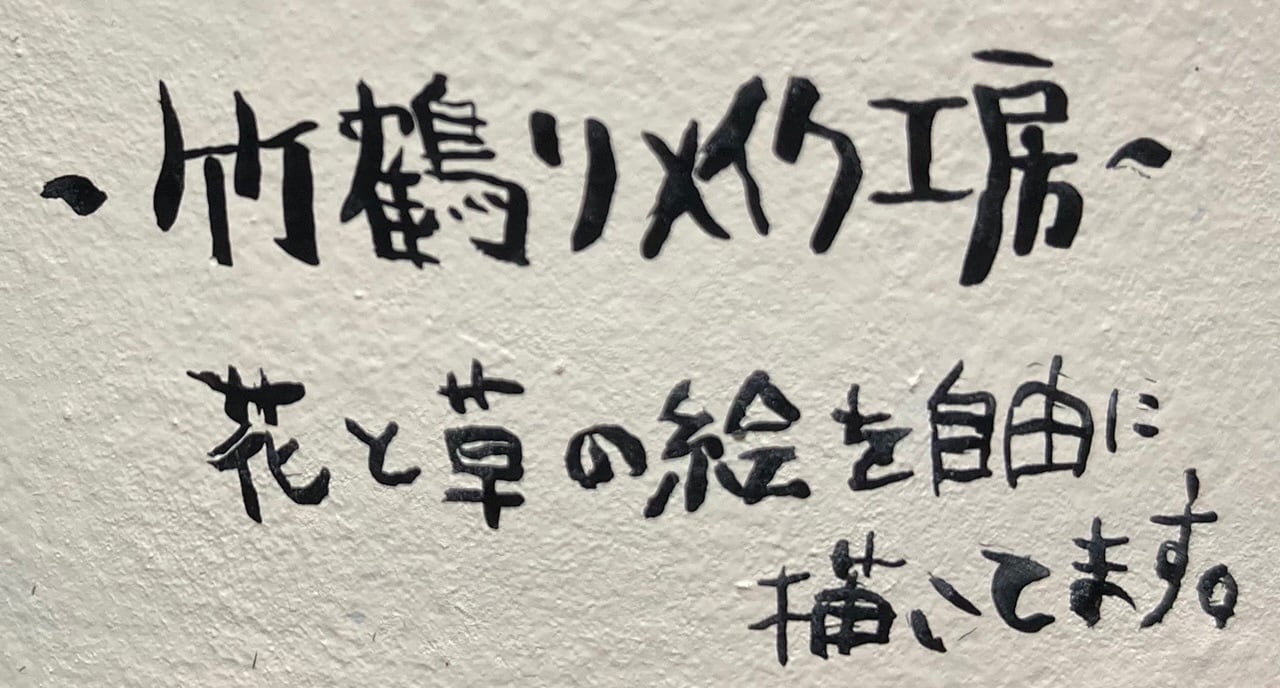 ～竹鶴リメイク工房～
花と草の絵を自由に
描いてます。